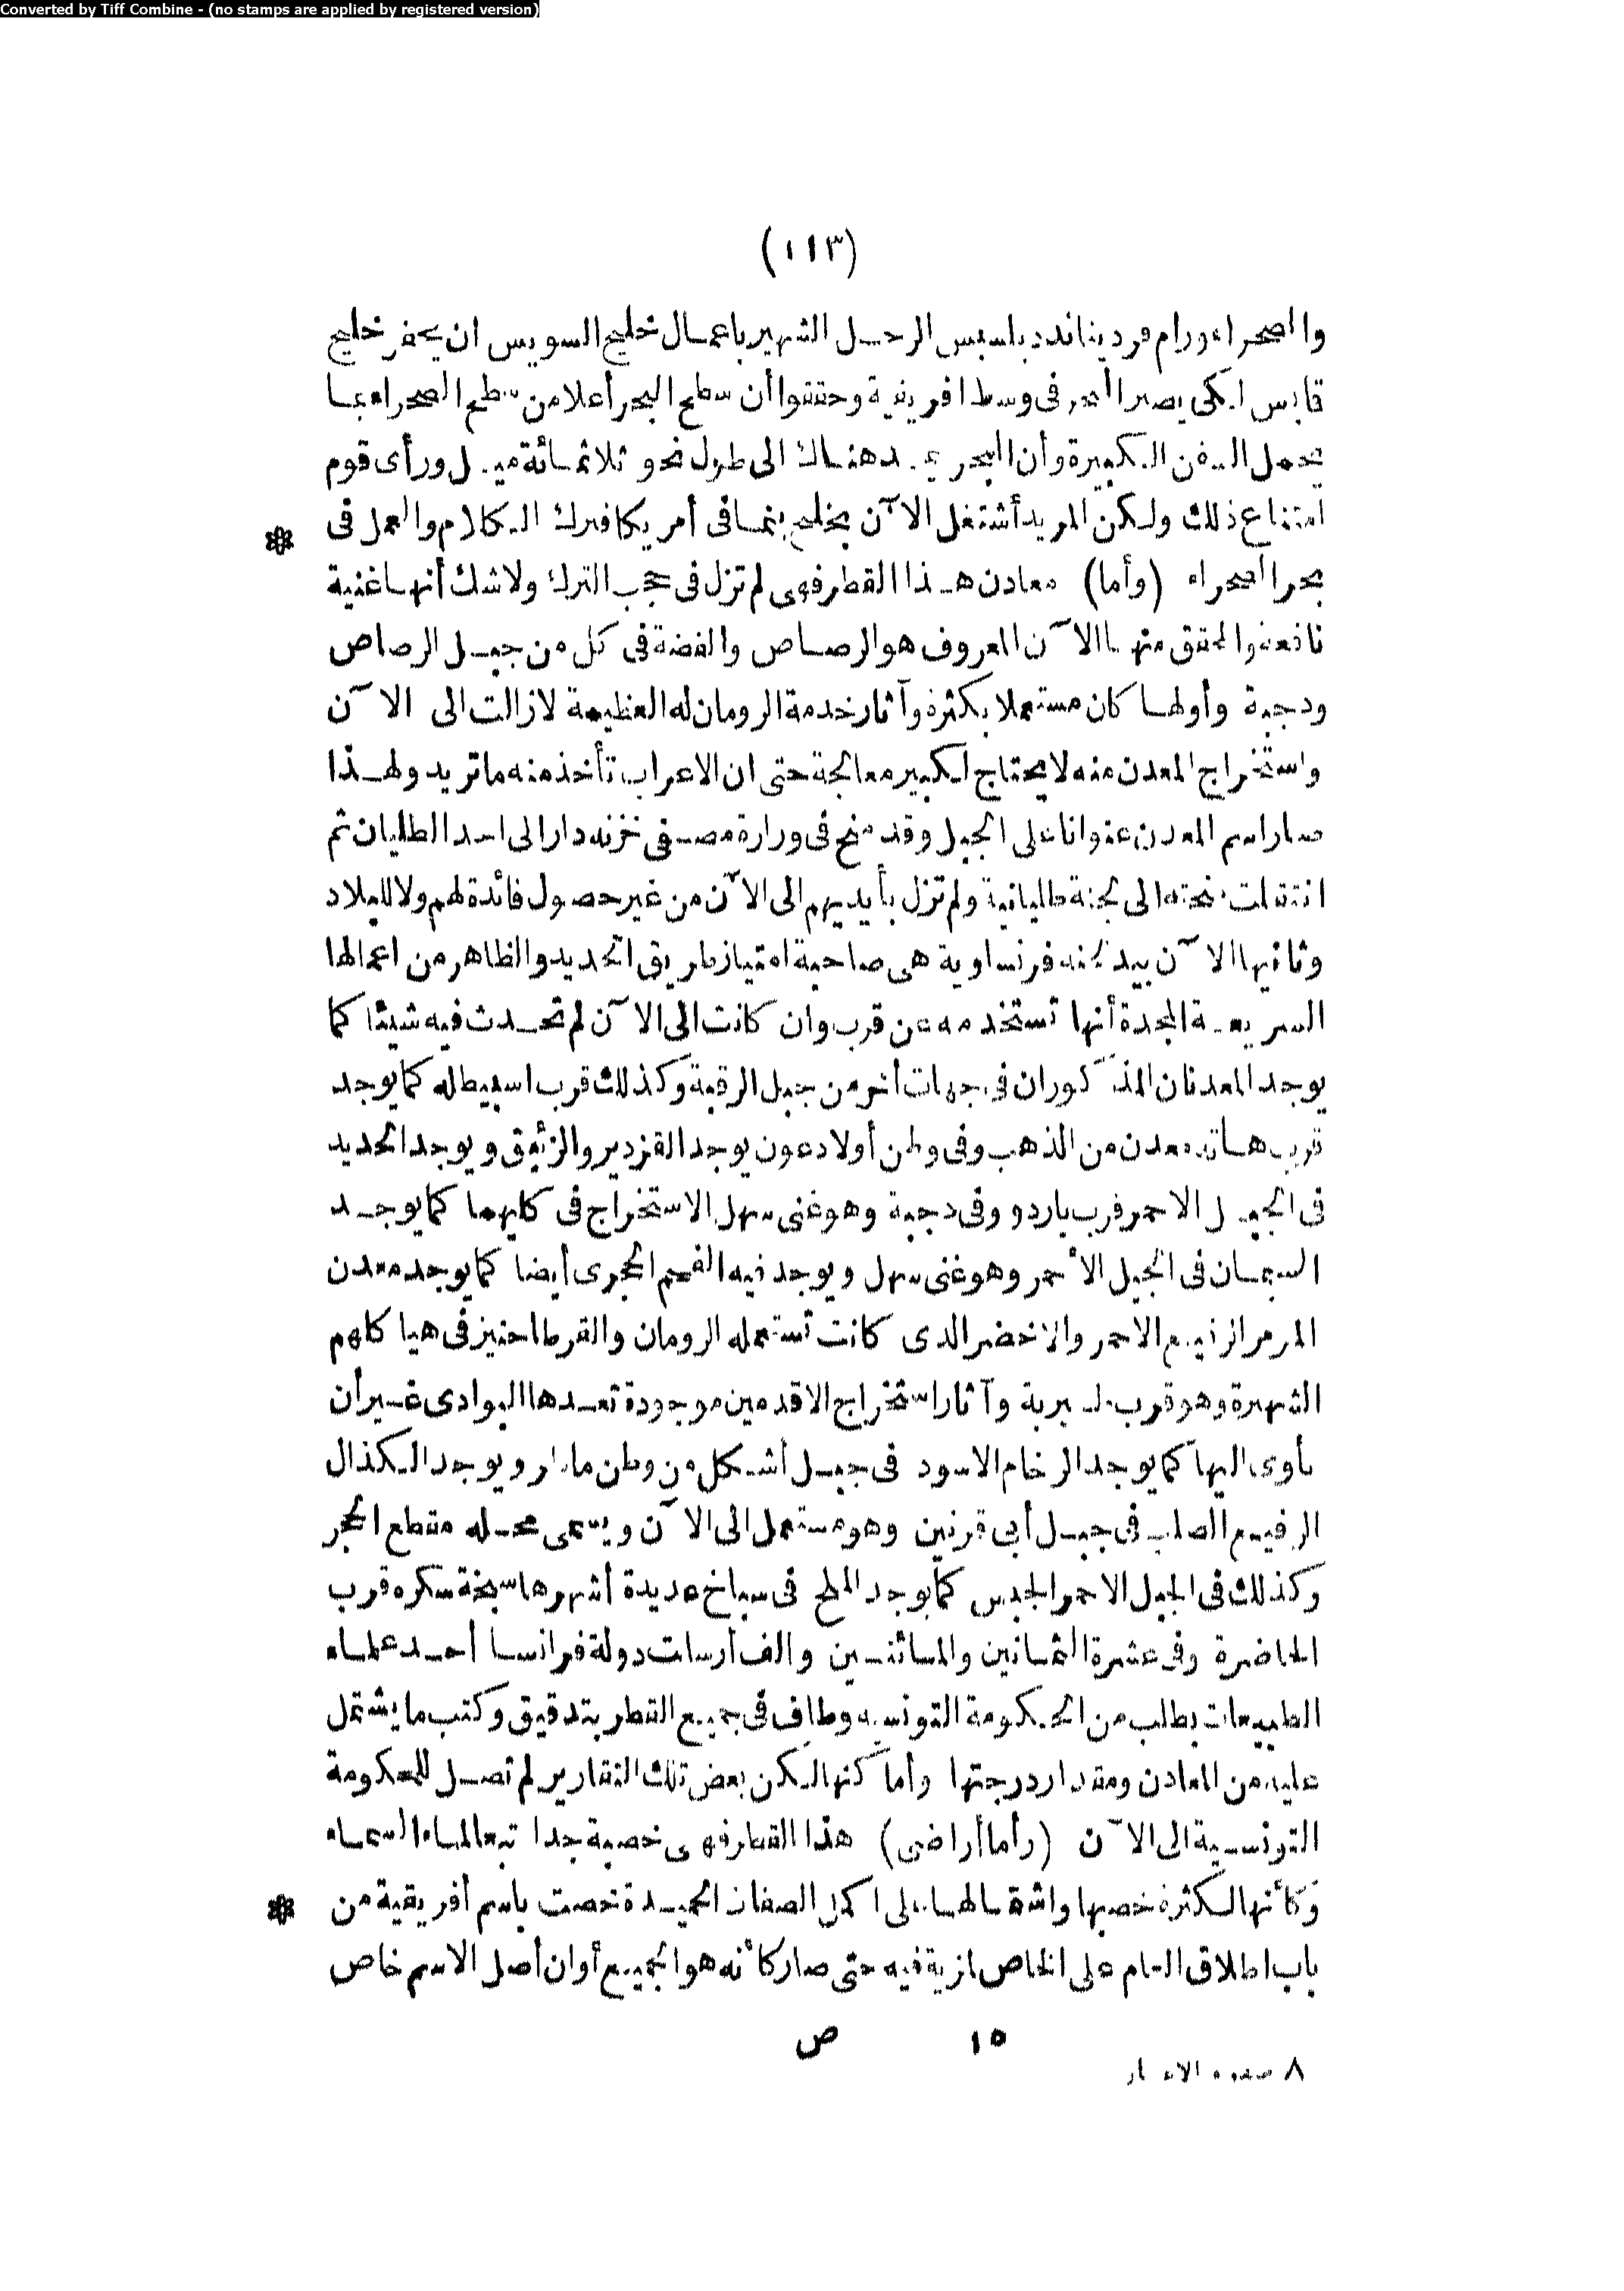 Converted by Tiff Combine - (no stamps are applied by registered version)
(١١٣)
والصحراء ورام فرديناند دبلسبس الرجل الشهير باعمال خليج السويس ان يحفر خليج
قابس لكى يصير البحر فى وسط افريقية وحققوا أن سطح البحر أعلا من سطح الصحراء بما
يحمل السفن الكبيرة وأن البحر يمد هناك الى طول نحو ثلاثمائة ميل ورأى قوم
امتناع ذلك ولكن المريد أشتغل الآن بخليج بنما فى أمريكا فترك الكلام والعمل فى
بحر الصحراء (وأما) معادن هذا القطر فهى لم تزل فى حجب الترك ولاشك أنها غنية
نافعة والمحقق منها الآن المعروف هو الرصاص والفضة فى كل من جبل الرصاص
ودجبة وأولها كان مستعملا بكثرة وآثار خدمة الرومان له العظيمة لازالت الى الآن
واستخراج المعدن منه لا يحتاج لكبير معالجة حتى ان الاعراب تأخذ منه ما تريد ولهذا
صار اسم المعدن عنوانا على الجبل وقد منح فى وزارة مصطفى خزنه دار الى احد الطليان ثم
انتقلت منحته الى لجنة طليانية ولم تزل بأيديهم الى الآن من غير حصول فائدة لهم ولا للبلاد
وثانيها الآن بيد لجنه فرنساوية هى صاحبة امتياز طريق الحديد والظاهر من اعمالها
السريعة المجدة أنها تستخدمه عن قرب وان كانت الى الآن لم تحدث فيه شيئا كما
يوجد المعدنان المذكوران فى جهات أخر من جبل الرقبة وكذلك قرب اسبيطله كما يوجد
قرب هاته معدن من الذهب وفى وطن أولاد عون يوجد القزدير والزئبق ويوجد الحديد
فى الجبل الاحمر قرب باردو وفى دجبة وهو غنى سهل الاستخراج فى كليهما كما يوجد
السمان فى الجبل الأحمر وهو غنى سهل ويوجد فيه الفحم الحجرى أيضا كما يوجد معدن
المرمر الرفيع الاحمر والاخضر الذى كانت تستعمله الرومان والقرطاجنيز فى هياكلهم
الشهيرة وهو قرب برية وآثار استخراج الاقدمين موجودة تعمدها البوادى غير أن
يأوى اليها كما يوجد الرخام الاسود فى جبل أشكل من وطن ماطر ويوجد الكذال
الرفيع الصلب فى جبل أبى قرنين وهو مستعمل الى الآن ويسمى محله مقطع الحجر
وكذلك فى الجبل الاحمر الجبس كما يوجد الملح فى سباخ عديدة أشهرها سبخة سكره قرب
الحاضرة وفى عشرة الثمانين والمائتين والف أرسلت دولة فرانسا أحد علماء
الطبيعيات بطلب من الحكومة التونسيه وطاف فى جميع القطر بتدقيق وكتب ما يشتمل
عليه من المعادن ومقدار درجتها وأماكنها لكن بعض تلك التقارير لم تصل للحكومة
التونسية الى الآن (وأما أراضى) هذا القطر فهى خصبة جدا تبعا لماء السماء
وكأنها لكثرة خصبها واشتمالها على اكمل الصفات الحميدة خصت باسم أفريقية من
باب اطلاق العام على الخاص لمزية فيه حتى صار كأنه هو الجميع أو ان أصل الاسم خاص
١٥ ص
٨ صفوة الاعتبار